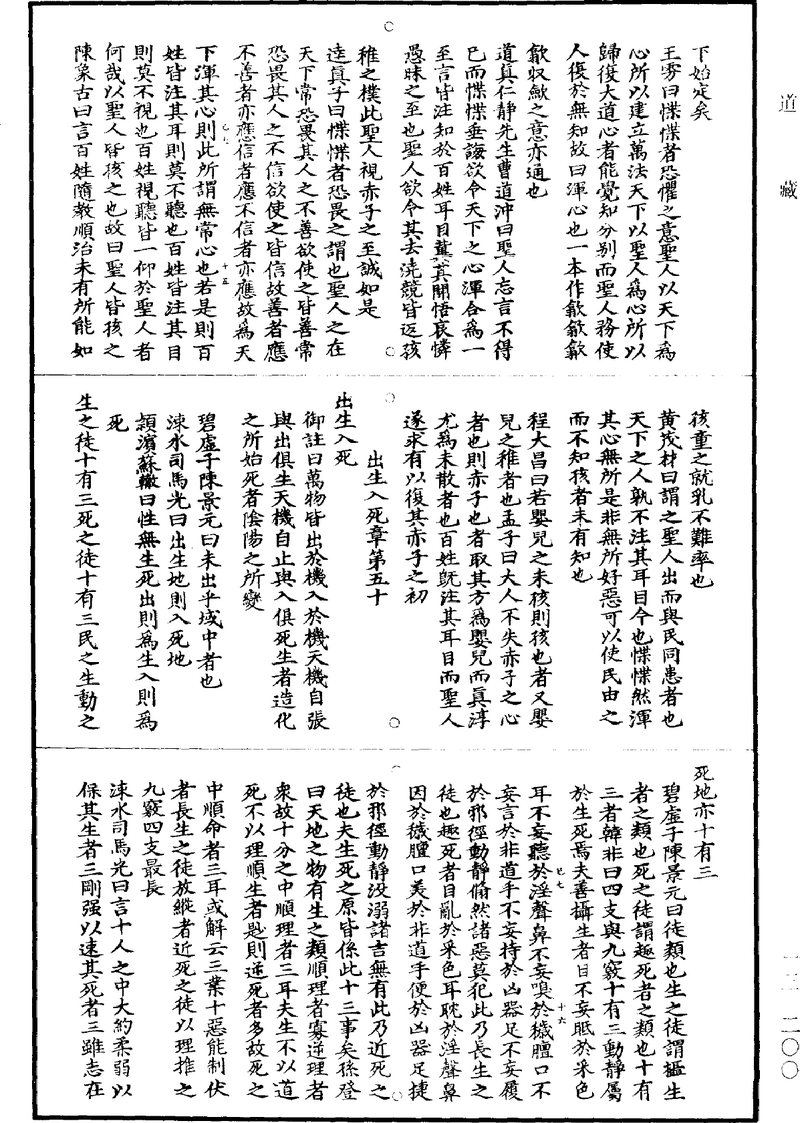 道藏
一三—二〇〇
下始定矣
王雱曰惵惵者恐懼之意聖人以天下爲
心所以建立萬法天下以聖人爲心所以
歸復大道心者能覺知分別而聖人務使
人復於無知故曰渾心也一本作歙歙歙
歙収斂之意亦通也
道真仁静先生曹道沖曰聖人忘言不得
已而惵惵垂誨欲令天下之心渾合爲一
至言皆注知於百姓耳目冀其開悟哀憐
愚昧之至也聖人欲令其去澆競皆返孩
稚之樸此聖人視赤子之至誠如是
逵真子曰惵惵者恐畏之謂也聖人之在
天下常恐畏其人之不善欲使之皆善常
恐畏其人之不信欲使之皆信故善者應
不善者亦應信者應不信者亦應故爲天
巳七
十五
下渾其心則此所謂無常心也若是則百
姓皆注其耳則莫不聽也百姓皆注其目
則莫不視也百姓視聽皆一仰於聖人者
何哉以聖人皆孩之也故曰聖人皆孩之
陳象古曰言百姓隨教順治未有所能如
孩童之就乳不難率也
黄茂材曰謂之聖人出而與民同患者也
天下之人孰不注其耳目今也惵惵然渾
其心無所是非無所好惡可以使民由之
而不知孩者未有知也
程大昌曰若嬰兒之未孩則孩也者又嬰
兒之稚者也孟子曰大人不失赤子之心
者也則赤子也者取其方爲嬰兒而真淳
尤爲未散者也百姓旣注其耳目而聖人
遂求有以復其赤子之初
出生入死章第五十
出生入死
御註曰萬物皆出於機入於機天機自張
與出俱生天機自止與入俱死生者造化
之所始死者陰陽之所變
碧虛子陳景元曰未出乎域中者也
涑水司馬光曰出生地則入死地
頴濱蘇轍曰性無生死出則爲生入則爲
死
生之徒十有三死之徒十有三民之生動之
死地亦十有三
碧虛子陳景元曰徒類也生之徒謂攝生
者之類也死之徒謂趣死者之類也十有
三者韓非曰四支與九竅十有三動静屬
於生死焉夫善攝生者目不妄眡於采色
巳七
十六
耳不妄聽於淫聲鼻不妄嗅於穢膻口不
妄言於非道手不妄持於凶器足不妄履
於邪徑動静翛然諸惡莫犯此乃長生之
徒也趣死者目亂於采色耳耽於淫聲鼻
因於穢膻口美於非道手便於凶器足捷
於邪徑動静没溺諸吉無有此乃近死之
徒也夫生死之原皆係此十三事矣孫登
曰天地之物有生之類順理者寡逆理者
衆故十分之中順理者三耳夫生不以道
死不以理順生者尠則逆死者多故死之
中順命者三耳或解云三業十惡能制伏
者長生之徒放縱者近死之徒以理推之
九竅四支最長
涑水司馬光曰言十人之中大約柔弱以
保其生者三剛强以速其死者三雖志在